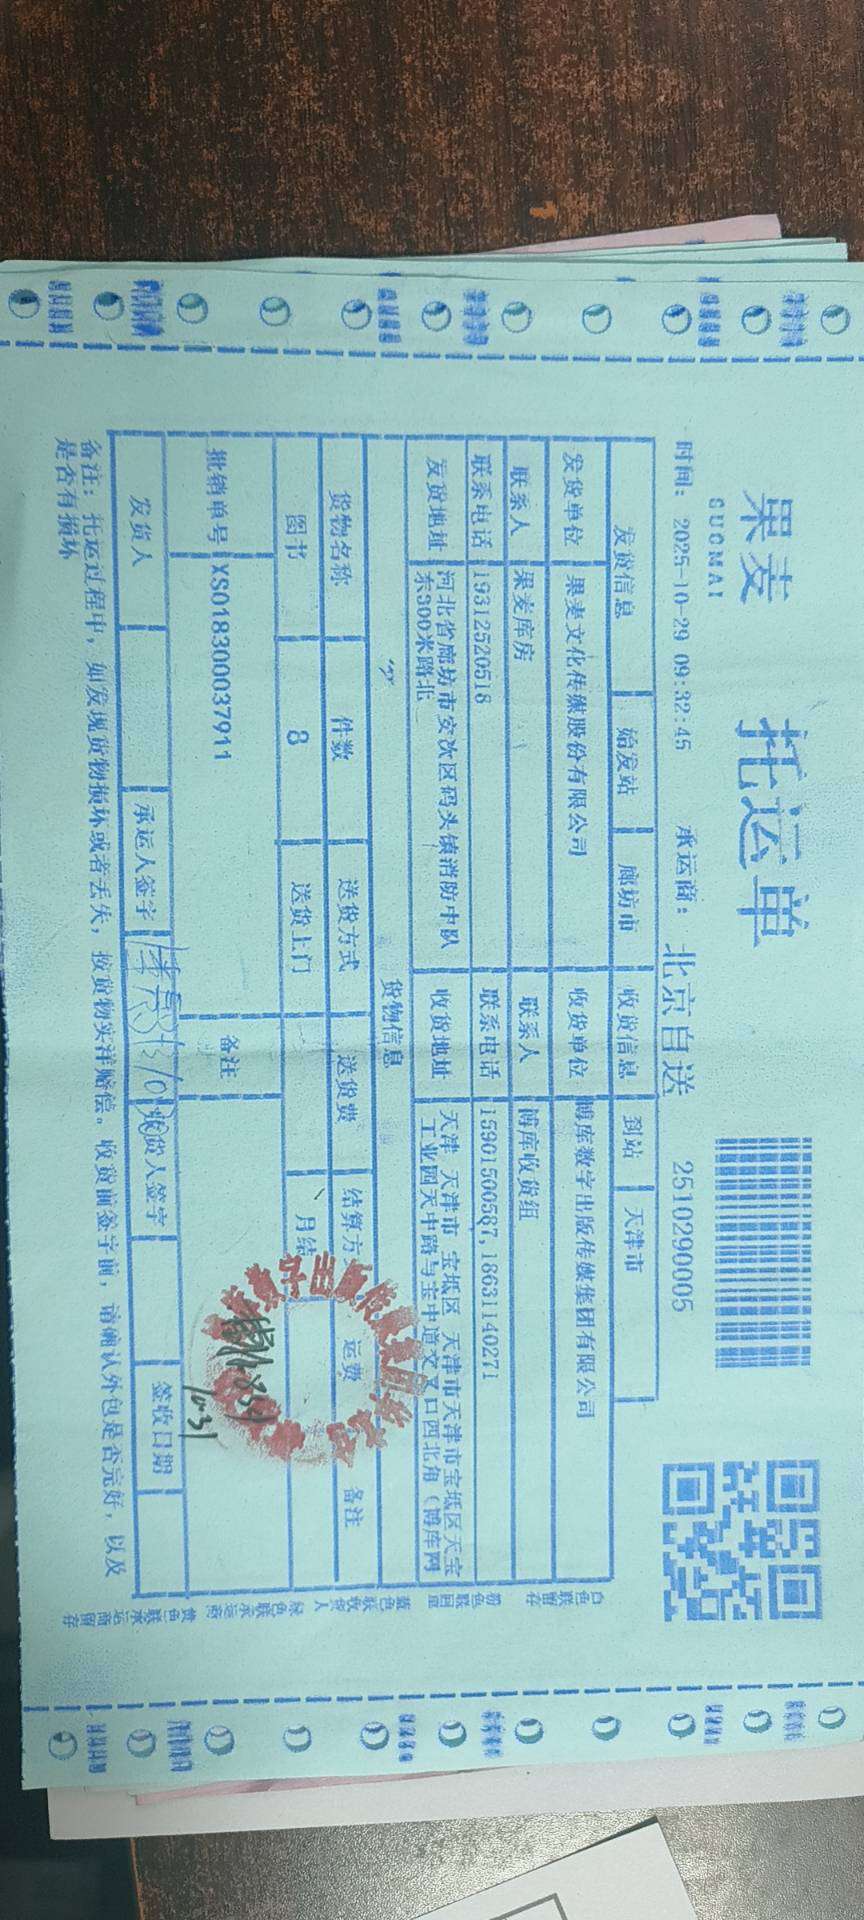 果麦
GUOMAI
托运单
时间: 2025-10-29 09:32:45 承运商: 北京自送 2510290005
发货信息 始发站 廊坊市 收货信息 到站 天津市
发货单位 果麦文化传媒股份有限公司 收货单位 博库数字出版传媒集团有限公司
联系人 果麦库房 联系人 博库收货组
联系电话 19312520518 联系电话 15901500587,18631140271
发货地址 河北省廊坊市安次区码头镇消防中队
东300米路北 收货地址 天津 天津市 宝坻区 天津市天津市宝坻区天宝
工业园天中路与宝中道交叉口西北角(博库网
货物信息
货物名称 件数 送货方式 送货费 结算方 运费 备注
图书 8 送货上门 月结
批销单号 XS018300037911 备注
发货人 承运人签字 收货人签字 签收日期
10.31
备注: 托运过程中, 如发现货物损坏或者丢失, 按货物实洋赔偿。收货前签字前, 请确认外包是否完好, 以及
是否有损坏
白色联留存
粉色联回单
蓝色联收货人
绿色联承运商
黄色联承运商留存